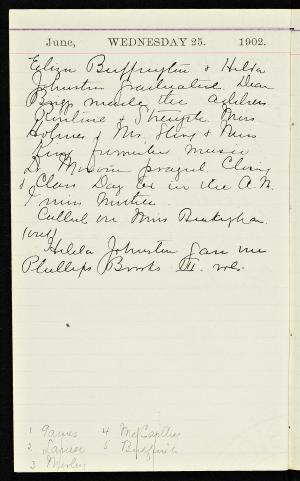 June, WEDNESDAY 25. 1902.
Eliza Buffington & Hilda
Johnston graduated. Dean
Briggs made the address
Pauline & Miss
Holmes & Mr. & Miss
King furnished music
Dr. prayed. Closing
& Class Day Ex in the A.M.
I
Called on Miss Buckingham
(out)
Hilda Johnston gave me
Phillips Brooks III. vols.
1 James 4 McCarthy
2 Lanier 5 Bulfinch
3